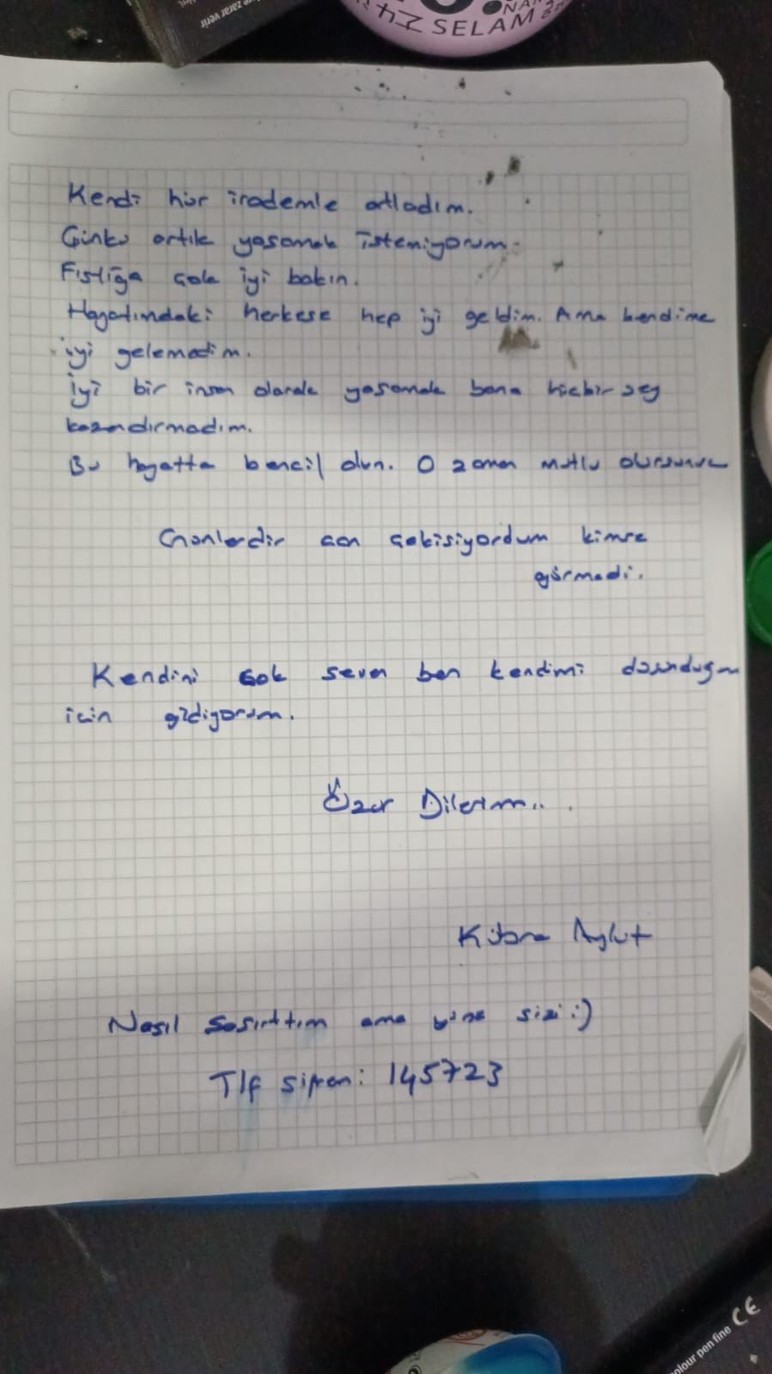 SELAM
zarar verir
Kendi hür irademle atladım.
Çünkü artık yaşamak istemiyorum.
Fıstığa çok iyi bakın.
Hayatımdaki herkese hep iyi geldim. Ama kendime
iyi gelemedim.
İyi bir insan olarak yaşamak bana hiçbir şey
kazandırmadım.
Bu hayatta bencil olun. O zaman mutlu olursunuz
Günlerdir can çekişiyordum kimse
görmedi.
Kendini çok seven ben kendimi
için gidiyorum.
Özür Dilerim...
Kübra Aykut
Nasıl şaşırttım ama yine sizi :)
Tlf şifrem: 145723
colour pen fine CE